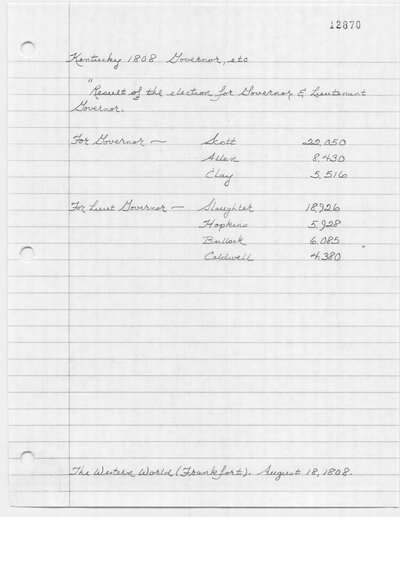 12870
Kentucky 1808 Governor, etc
"Result of the election for Governor & Lieutenant
Governor.
For Governor — Scott 22,050
Allen 8,430
Clay 5,516
For Lieut Governor — Slaughter 18,926
Hopkins 5,928
Bullock 6,085
Caldwell 4,380
The Western World (Frankfort). August 18, 1808.